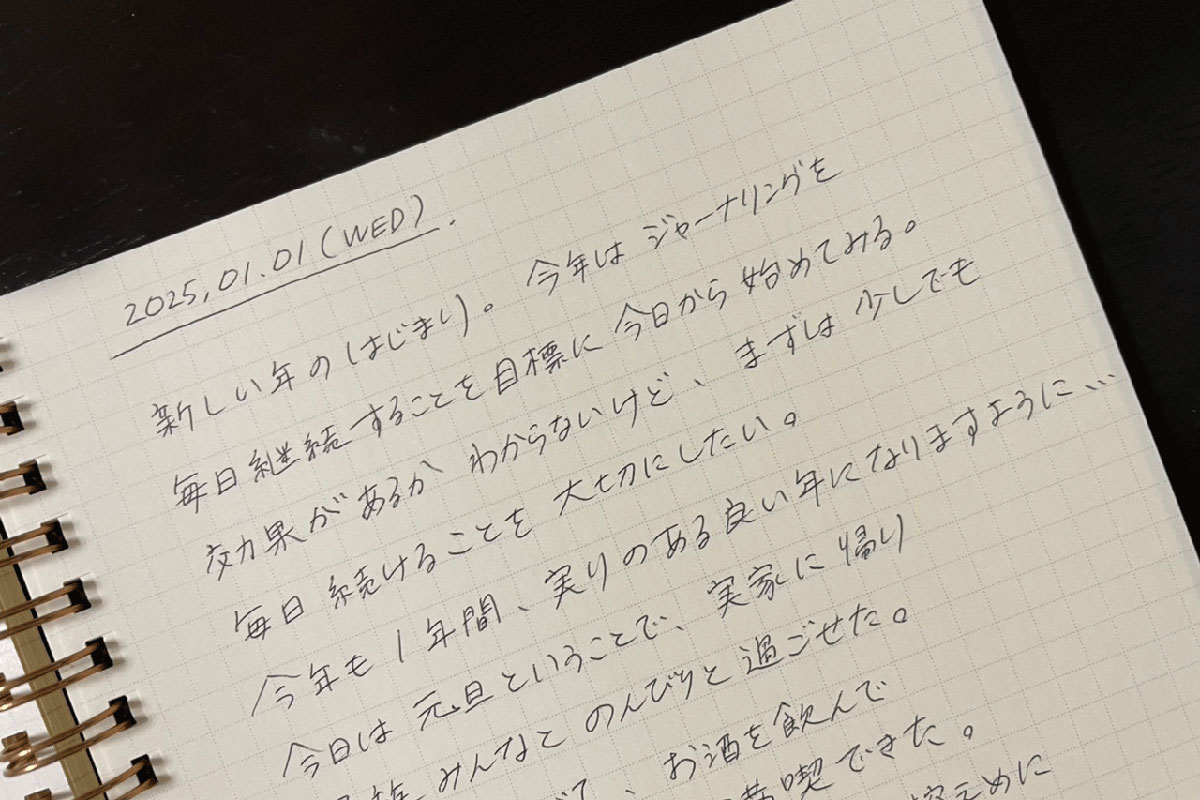 2025.01.01(WED).
新しい年のはじまり。今年はジャーナリングを
毎日継続することを目標に今日から始めてみる。
効果があるかわからないけど、まずは少しでも
毎日続けることを大切にしたい。
今年も1年間、実りのある良い年になりますように…
今日は元旦ということで、実家に帰り
みんなとのんびりと過ごせた。
お酒を飲んで
喫できた。
控えめに